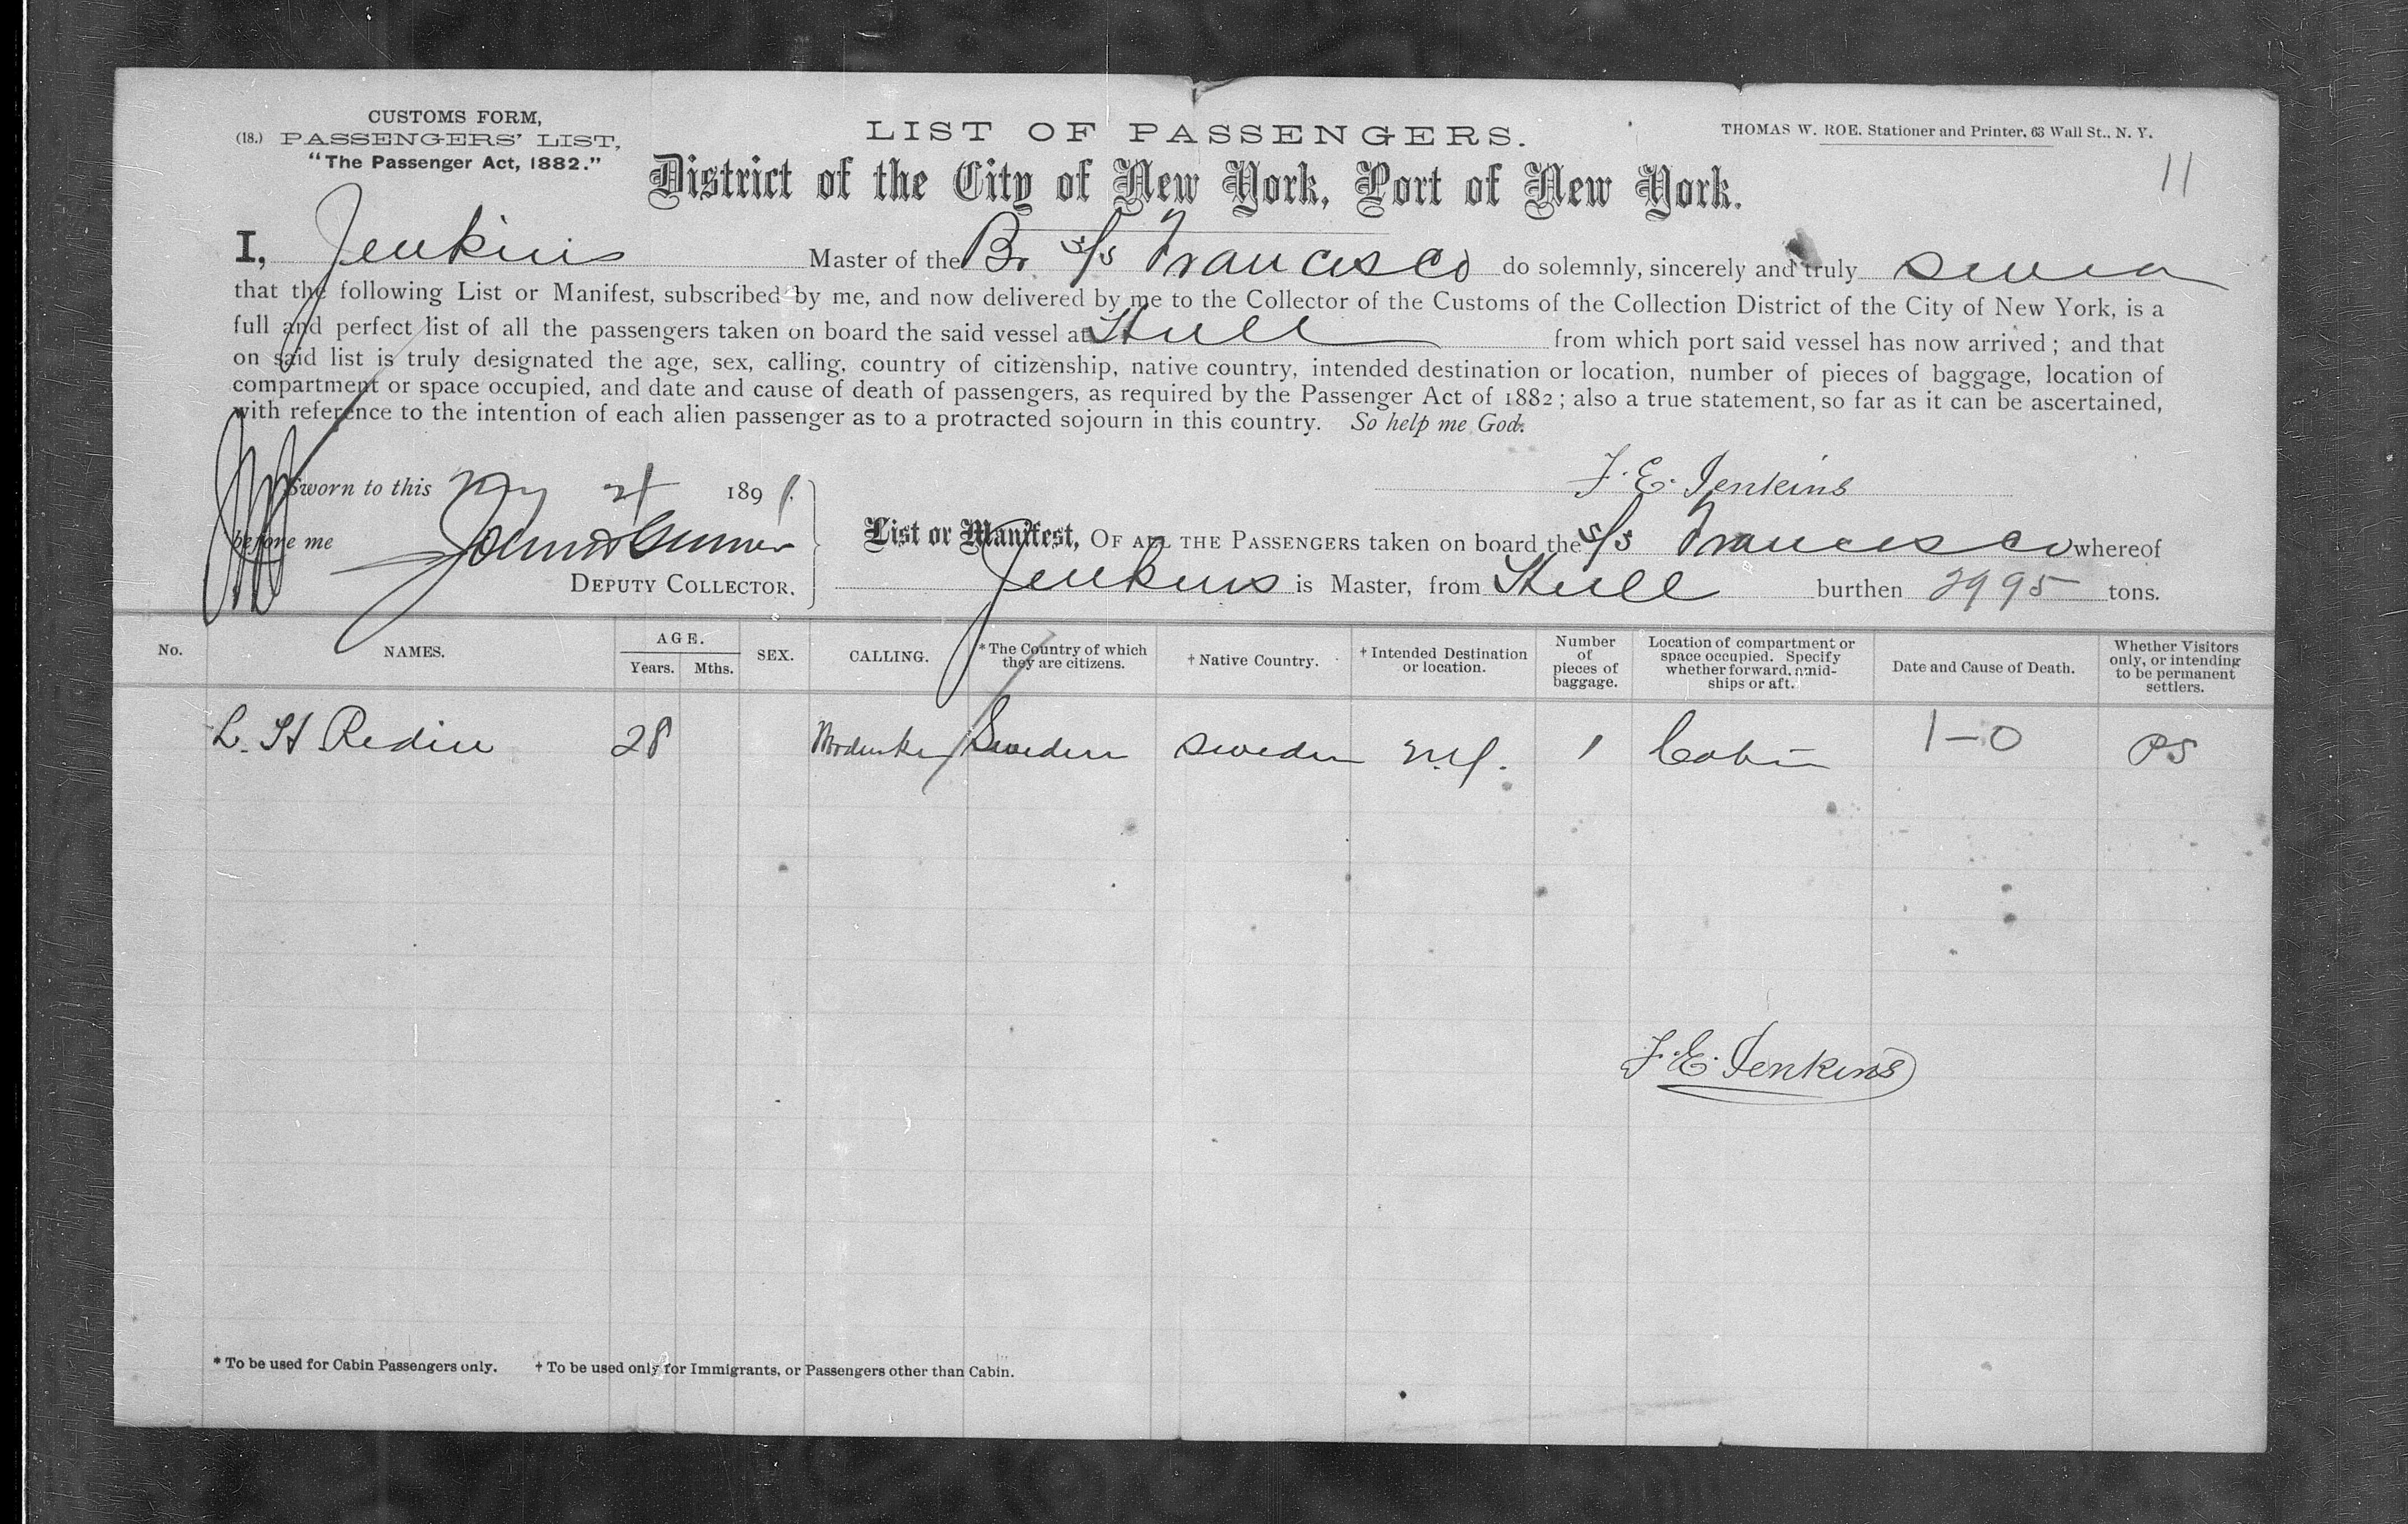 CUSTOMS FORM,
(18.) PASSENGERS' LIST,
"The Passenger Act, 1882."
LIST OF PASSENGERS.
THOMAS W. ROE, Stationer and Printer, 63 Wall St., N. Y.
11
District of the City of New York, Port of New York.
I, Jenkins Master of the Br S/S Francisco do solemnly, sincerely and truly swear
that the following List or Manifest, subscribed by me, and now delivered by me to the Collector of the Customs of the Collection District of the City of New York, is a
full and perfect list of all the passengers taken on board the said vessel at Hull from which port said vessel has now arrived; and that
on said list is truly designated the age, sex, calling, country of citizenship, native country, intended destination or location, number of pieces of baggage, location of
compartment or space occupied, and date and cause of death of passengers, as required by the Passenger Act of 1882; also a true statement, so far as it can be ascertained,
with reference to the intention of each alien passenger as to a protracted sojourn in this country. So help me God.
F. E. Jenkins
Sworn to this 189
before me
DEPUTY COLLECTOR.
List or Manifest, OF ALL THE PASSENGERS taken on board the S/S Francisco whereof
Jenkins is Master, from Hull burthen 2995 tons.
No. NAMES. AGE. Years. Mths. SEX. CALLING. *The Country of which they are citizens. † Native Country. † Intended Destination or location. Number of pieces of baggage. Location of compartment or space occupied. Specify whether forward, amidships or aft. Date and Cause of Death. Whether Visitors only, or intending to be permanent settlers.
L. H Redin 28 Sweden Sweden N.Y. 1 Cabin 1-0 PS
F. E. Jenkins
* To be used for Cabin Passengers only. † To be used only for Immigrants, or Passengers other than Cabin.